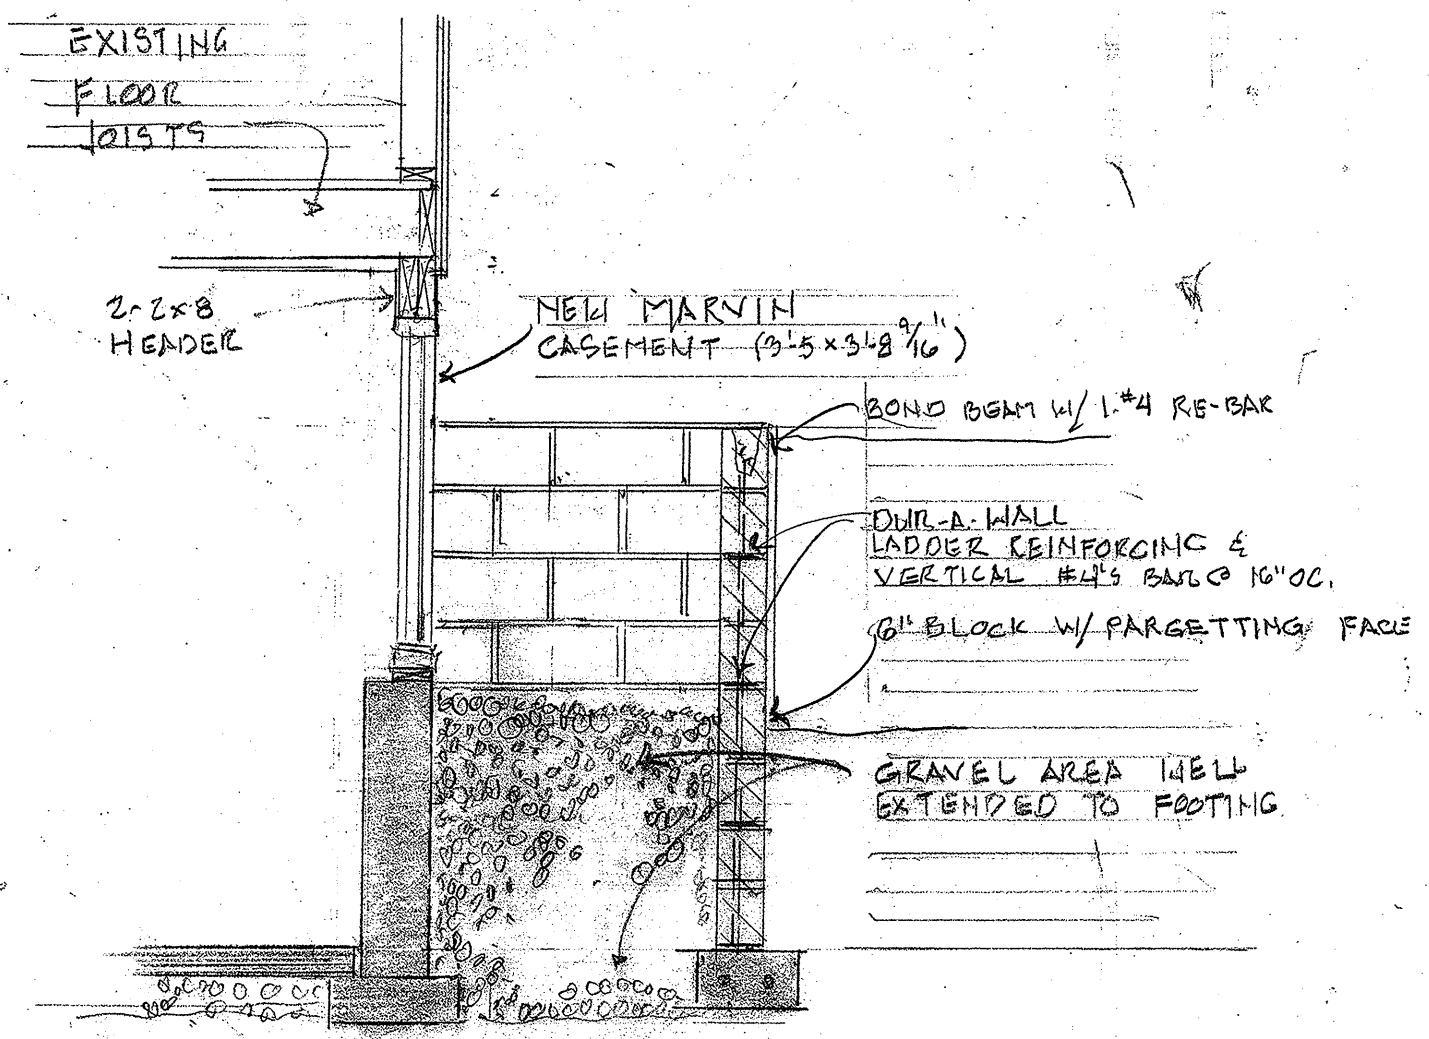 EXISTING
FLOOR
JOISTS
2-2x8
HEADER
NEW MARVIN
CASEMENT (3'-5 x 3'-8 9/16")
BOND BEAM W/ 1-#4 RE-BAR
DUR-A-WALL
LADDER REINFORCING &
VERTICAL #4'S BAR @ 16" OC.
6" BLOCK W/ PARGETTING FACE
GRAVEL AREA WELL
EXTENDED TO FOOTING